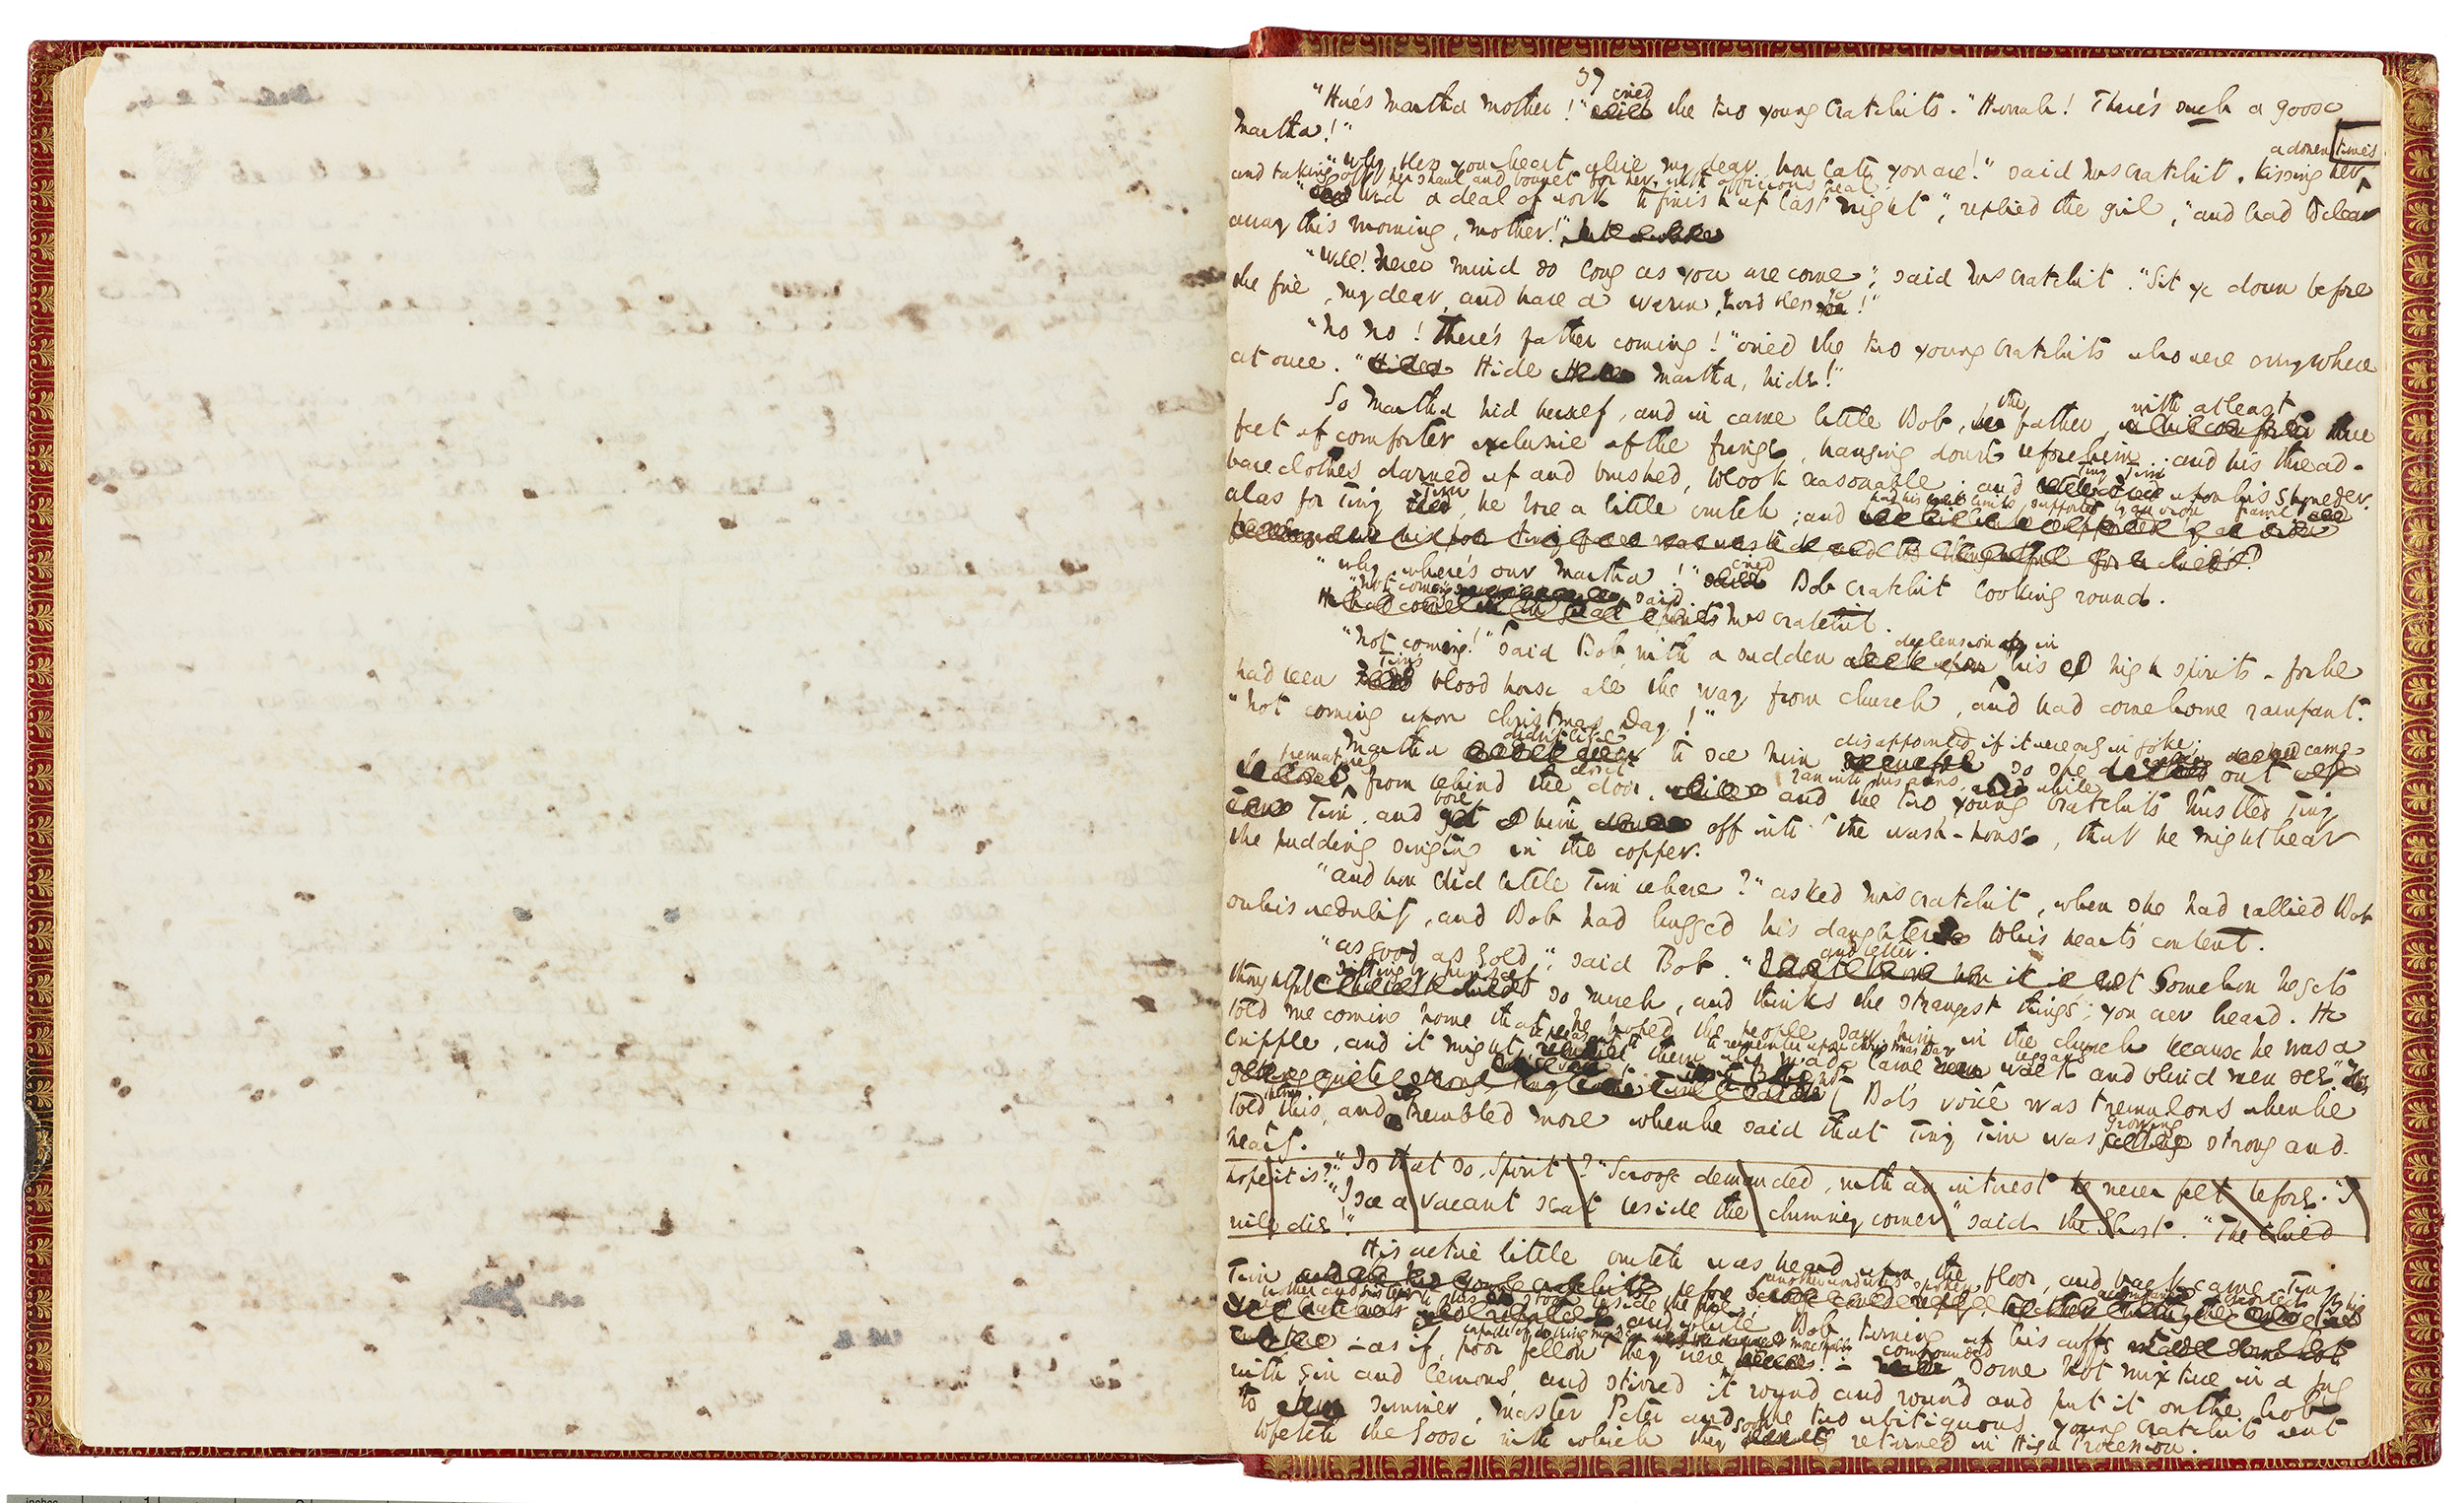 37
"Here's Martha mother!" cried the two young Cratchits. "Hurrah! There's such a goose
Martha!"
"Why, bless your heart alive my dear, how late you are!" said Mrs Cratchit, kissing her a dozen times
and taking off her shawl and bonnet for her, with officious zeal.
"We'd a deal of work to finish up last night", replied the girl, "and had to clear
away this morning, mother!"
"Well! Never mind so long as you are come", said Mrs Cratchit. "Sit ye down before
the fire, my dear, and have a warm, Lord bless ye!"
"No no! There's father coming!" cried the two young Cratchits who were everywhere
at once. "Hide Martha, hide!"
So Martha hid herself, and in came little Bob, the father, with at least three
feet of comforter exclusive of the fringe, hanging down before him; and his thread-
bare clothes darned up and brushed, to look seasonable; and Tiny Tim upon his shoulder.
Alas for Tiny Tim, he bore a little crutch; and had his limbs supported by an iron frame!
"Why, where's our Martha!" cried Bob Cratchit looking round.
"Not coming" said Mrs Cratchit.
"Not coming!" said Bob, with a sudden declension in his high spirits - for he
had been Tim's blood horse all the way from church, and had come home rampant.
"Not coming upon Christmas Day!"
Martha didn't like to see him disappointed, if it were only in joke; so she came out
prematurely from behind the closet door, and ran into his arms, while the two young Cratchits hustled Tiny
Tim, and bore him off into the wash-house, that he might hear
the pudding singing in the copper.
"And how did little Tim behave?" asked Mrs Cratchit, when she had rallied Bob
on his credulity, and Bob had hugged his daughter to his heart's content.
"As good as gold", said Bob. "and better. Somehow he gets
thoughtful sitting by himself so much, and thinks the strangest things you ever heard. He
told me coming home that he hoped the people saw him in the church because he was a
cripple, and it might be pleasant to them to remember upon Christmas Day who made lame beggars walk and blind men see."
Bob's voice was tremulous when he
told them this, and trembled more when he said that Tiny Tim was growing strong and
hearty.
"Is that so, Spirit?" Scrooge demanded, with an interest he never felt before. "I
hope it is?"
"I see a vacant seat beside the chimney corner" said the Ghost. "The child
will die!"
His active little crutch was heard upon the floor, and back came Tiny
Tim before another word was spoken, escorted by his
brother and sister to his stool beside the fire; and while Bob, turning up his cuffs
- as if, poor fellow they were capable of being made more shabby - compounded some hot mixture in a jug
with gin and lemons, and stirred it round and round and put it on the hob
to simmer, Master Peter and the two ubiquitous young Cratchits went
to fetch the Goose with which they soon returned in High Procession.
inches 1 2